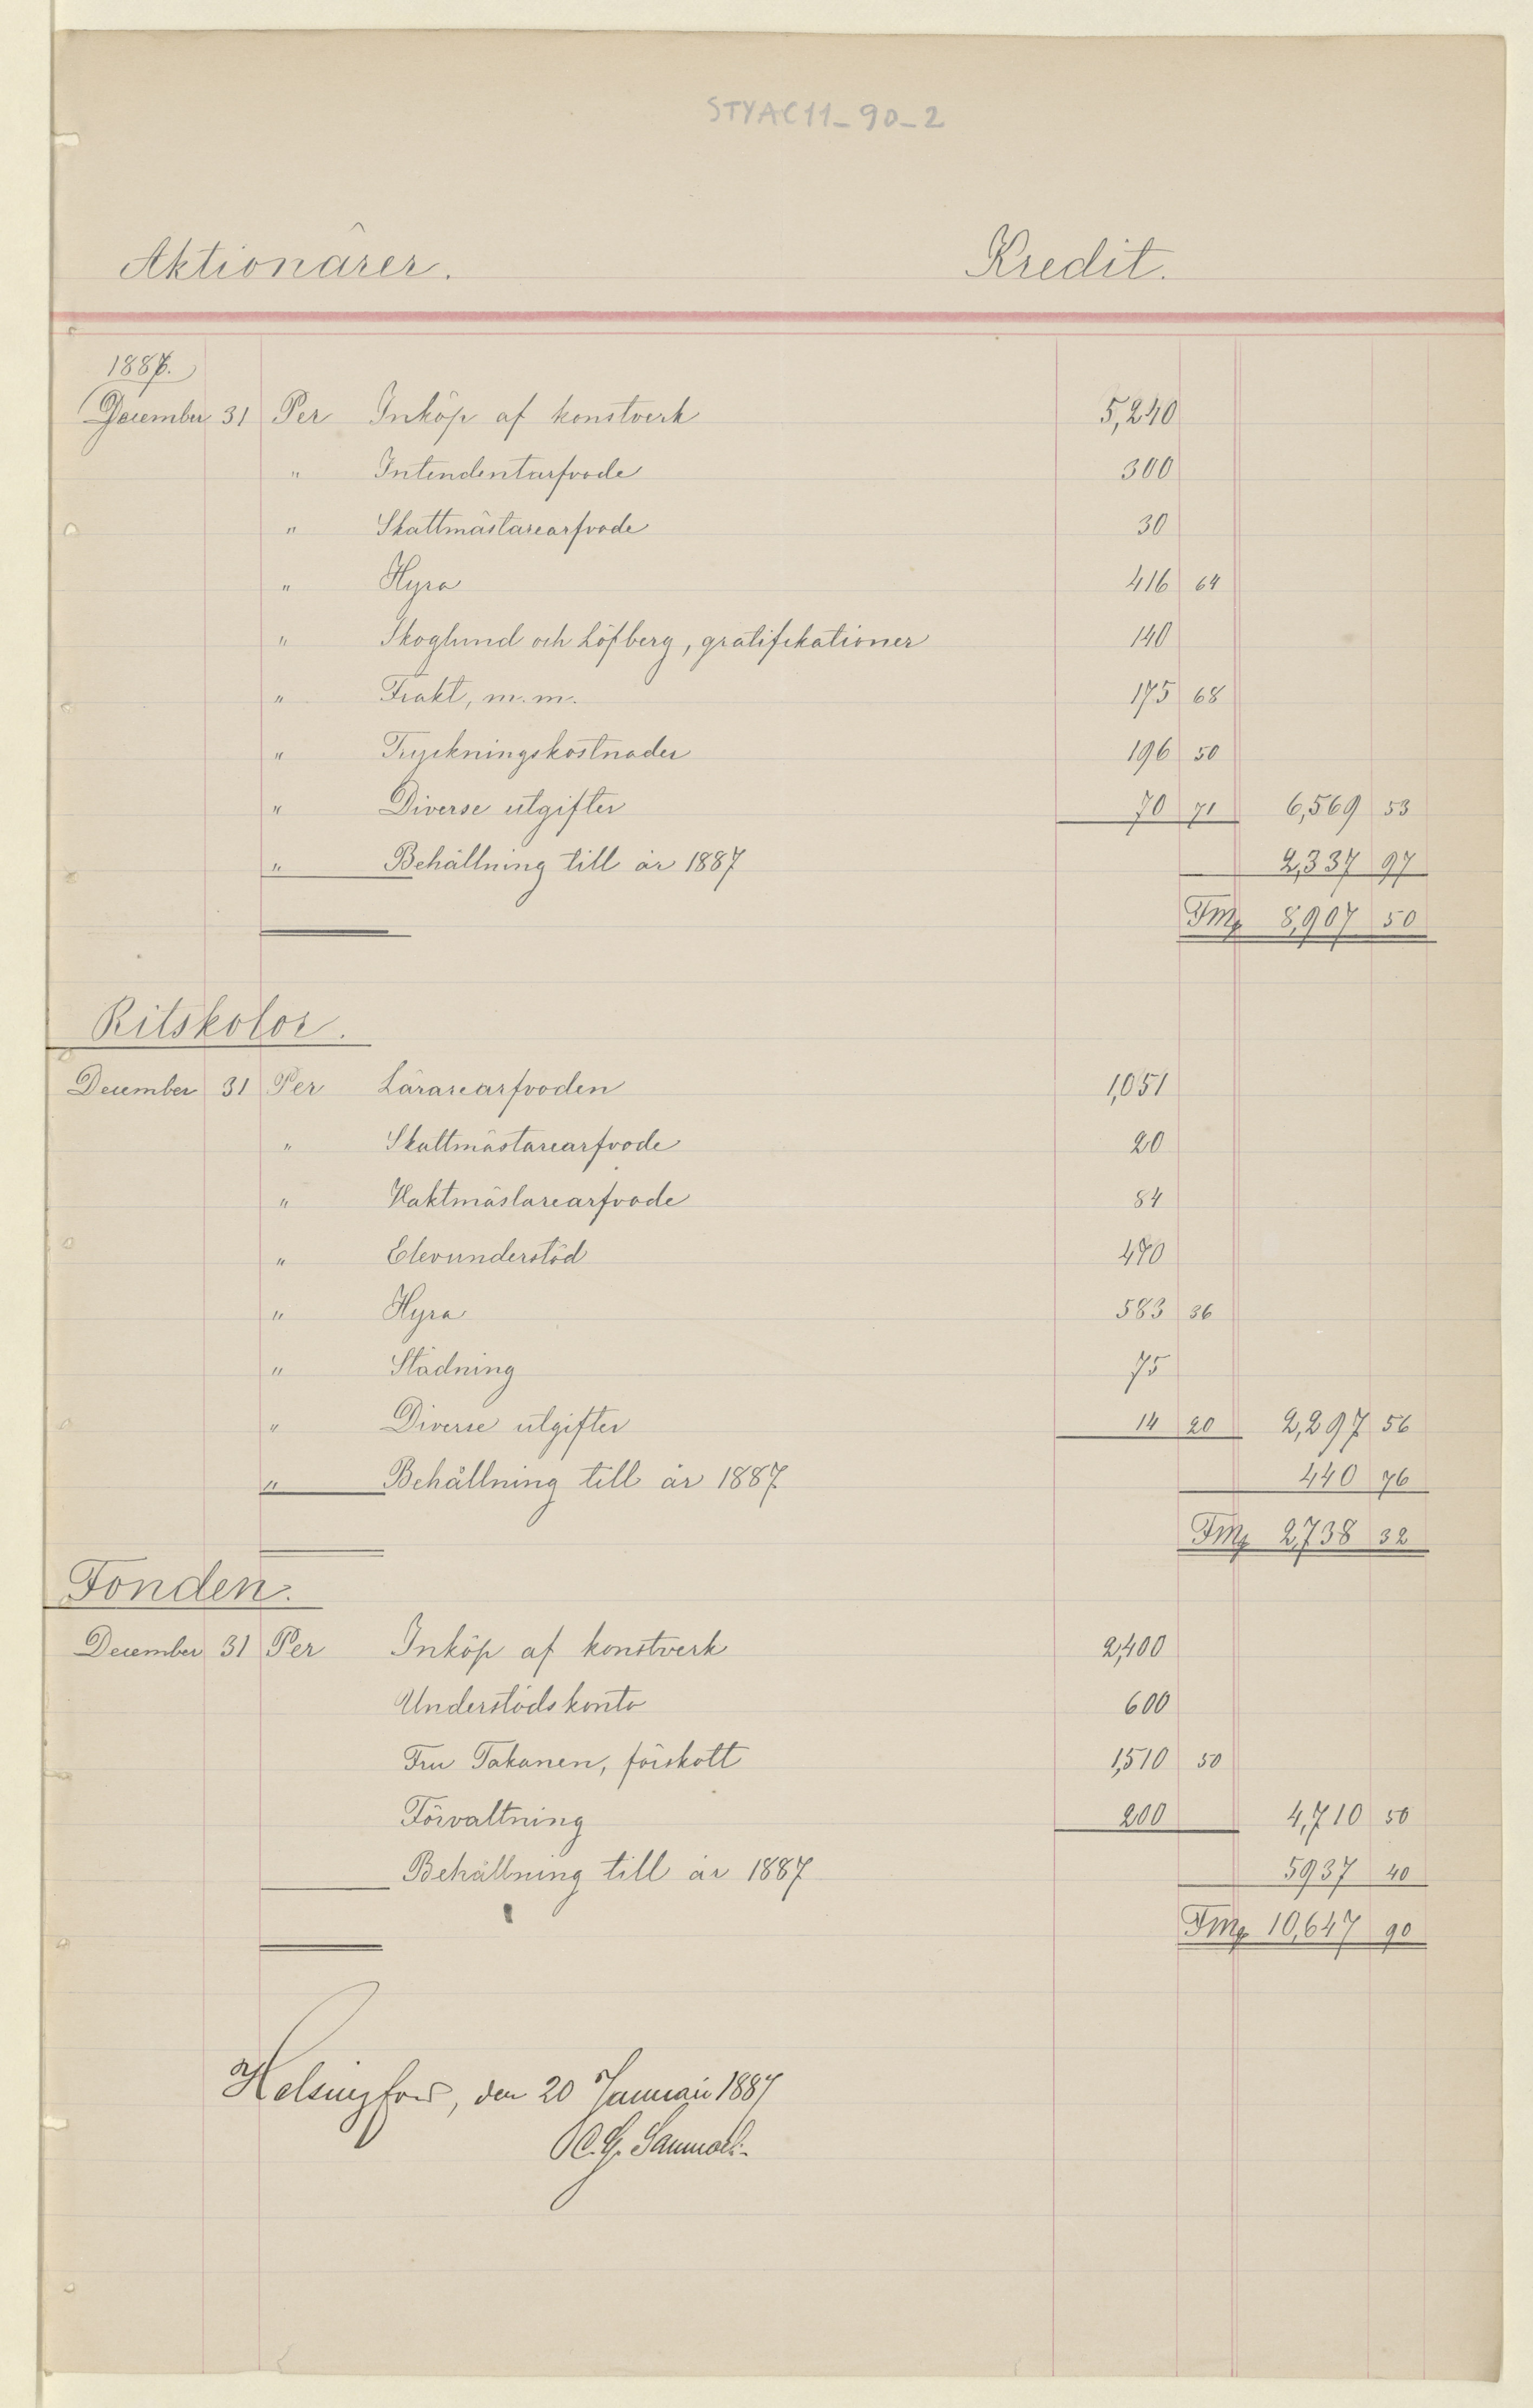 STYAC11_90_2
Aktionärer. Kredit.
1886.
December 31 Per Inköp af konstverk 5,240
" Intendentarfvode 300
" Skattmästarearfvode 30
" Hyra 416 64
" Skoglund och Löfberg, gratifikationer 140
" Frakt, m.m. 175 68
" Tryckningskostnader 196 50
" Diverse utgifter 70 71 6,569 53
" Behållning till år 1887 2,337 97
Fmg 8,907 50
Ritskolor.
December 31 Per Lärarearfvoden 1,051
" Skattmästarearfvode 20
" Vaktmästarearfvode 84
" Elevunderstöd 470
" Hyra 583 36
" Städning 75
" Diverse utgifter 14 20 2,297 56
" Behållning till år 1887 440 76
Fmg 2,738 32
Fonden.
December 31 Per Inköp af konstverk 2,400
Understöds konto 600
Fru Takanen, förskott 1,510 50
Förvaltning 200 4,710 50
Behållning till år 1887 5937 40
Fmg 10,647 90
Helsingfors, den 20 Januari 1887
C. G.